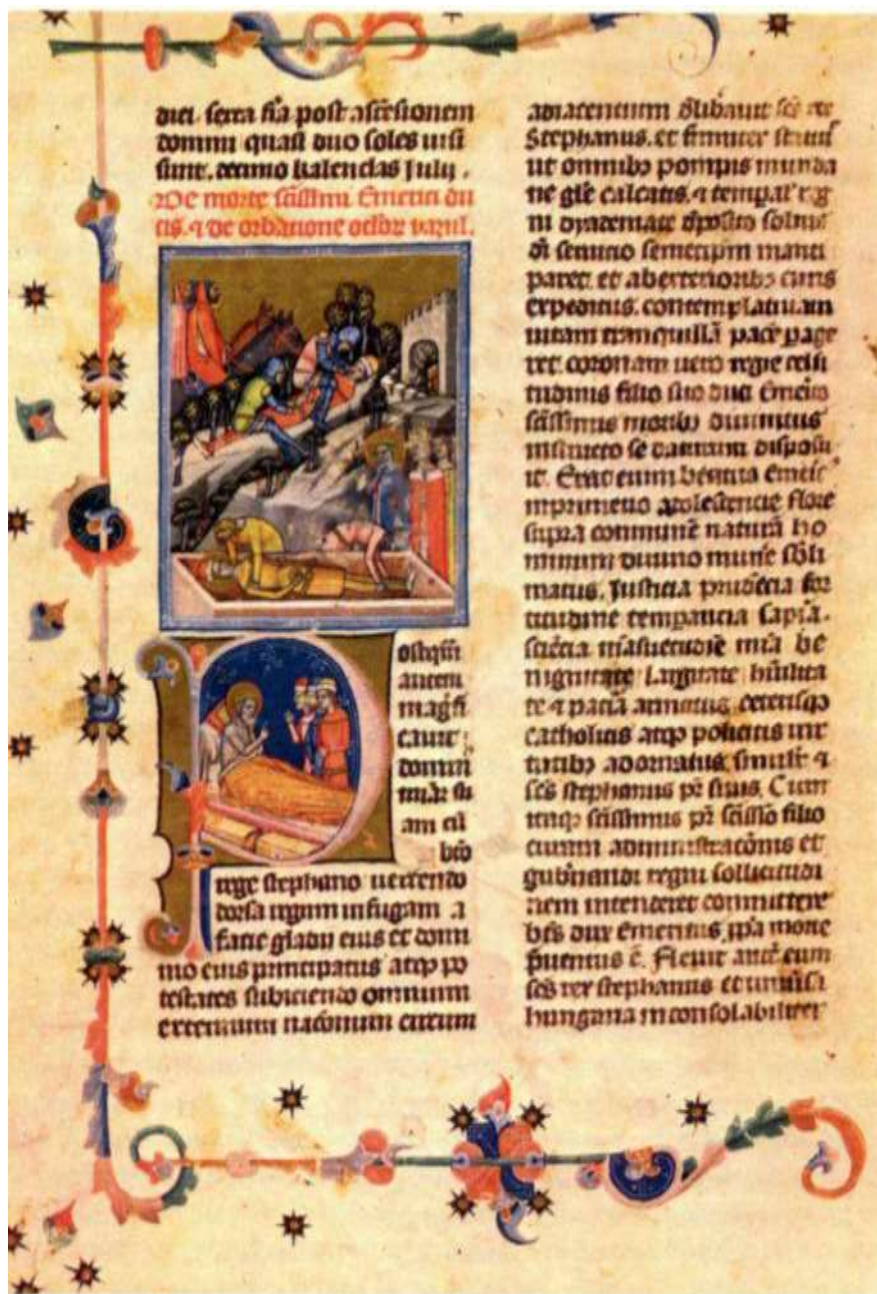 dici. feria sc̃a post ascẽsionem
domini quasi duo soles uisi
sunt. decimo kalendas Julij.
De morte sc̃issimi Emerici du
cis. ⁊ de orbatione oclor̃ vazul.
ostqm̃
autem
magĩfi
cauit
domin
mĩam su
am cũ
bt̃o
rege stephano uertendo
dorsa regum in fugam a
facie gladij eius et domi
nio eius principatus atqꝫ po
testates subiciendo omnium
exterarum nac̃onum circum
adiacentium dl̃ibauit sc̃s rex
Stephanus. et firmiter statuit
ut omnibꝫ pompis munda
ne gl̃e calcatis. ⁊ tempal' reg
ni dyademate dp̃osito solius
dĩ seruicio semetip̃m manci
paret. et ab exterioribꝫ curis
expeditus. contemplatiuam
uitam tranquillã pace page
ret. coronam uero regie celsi
tudinis filio suo duci Emerico
sc̃issimis moribꝫ diuinitus
instructo se daturum disposu
it. Erat enim beatus Emeic'
in primeuo adolescencie flore
supra commune naturã ho
minum diuino mun̄e sb̃li
matus. Justicia prudẽcia for
titudine temp̃ancia sapĩa.
scĩẽcia mãsuetudĩe mĩa be
nignitate largitate hũilita
te ⁊ pacĩa armatus. ceterisqꝫ
catholicis atqꝫ politicis uir
tutibꝫ adornatus simul̃r ⁊
sc̃s stephanus pr̃ suus. Cum
itaqꝫ sc̃issimus pr̃ sc̃issĩo filio
curam administrac̃onis et
gub̃nandi regni sollicitudi
nem intenderet committere
bt̃s dux Emericus. ip̃a morte
p̃uentus ẽ. Fleuit aut̃ eum
sc̃s rex stephanus et uniũsa
hungaria inconsolabiliter